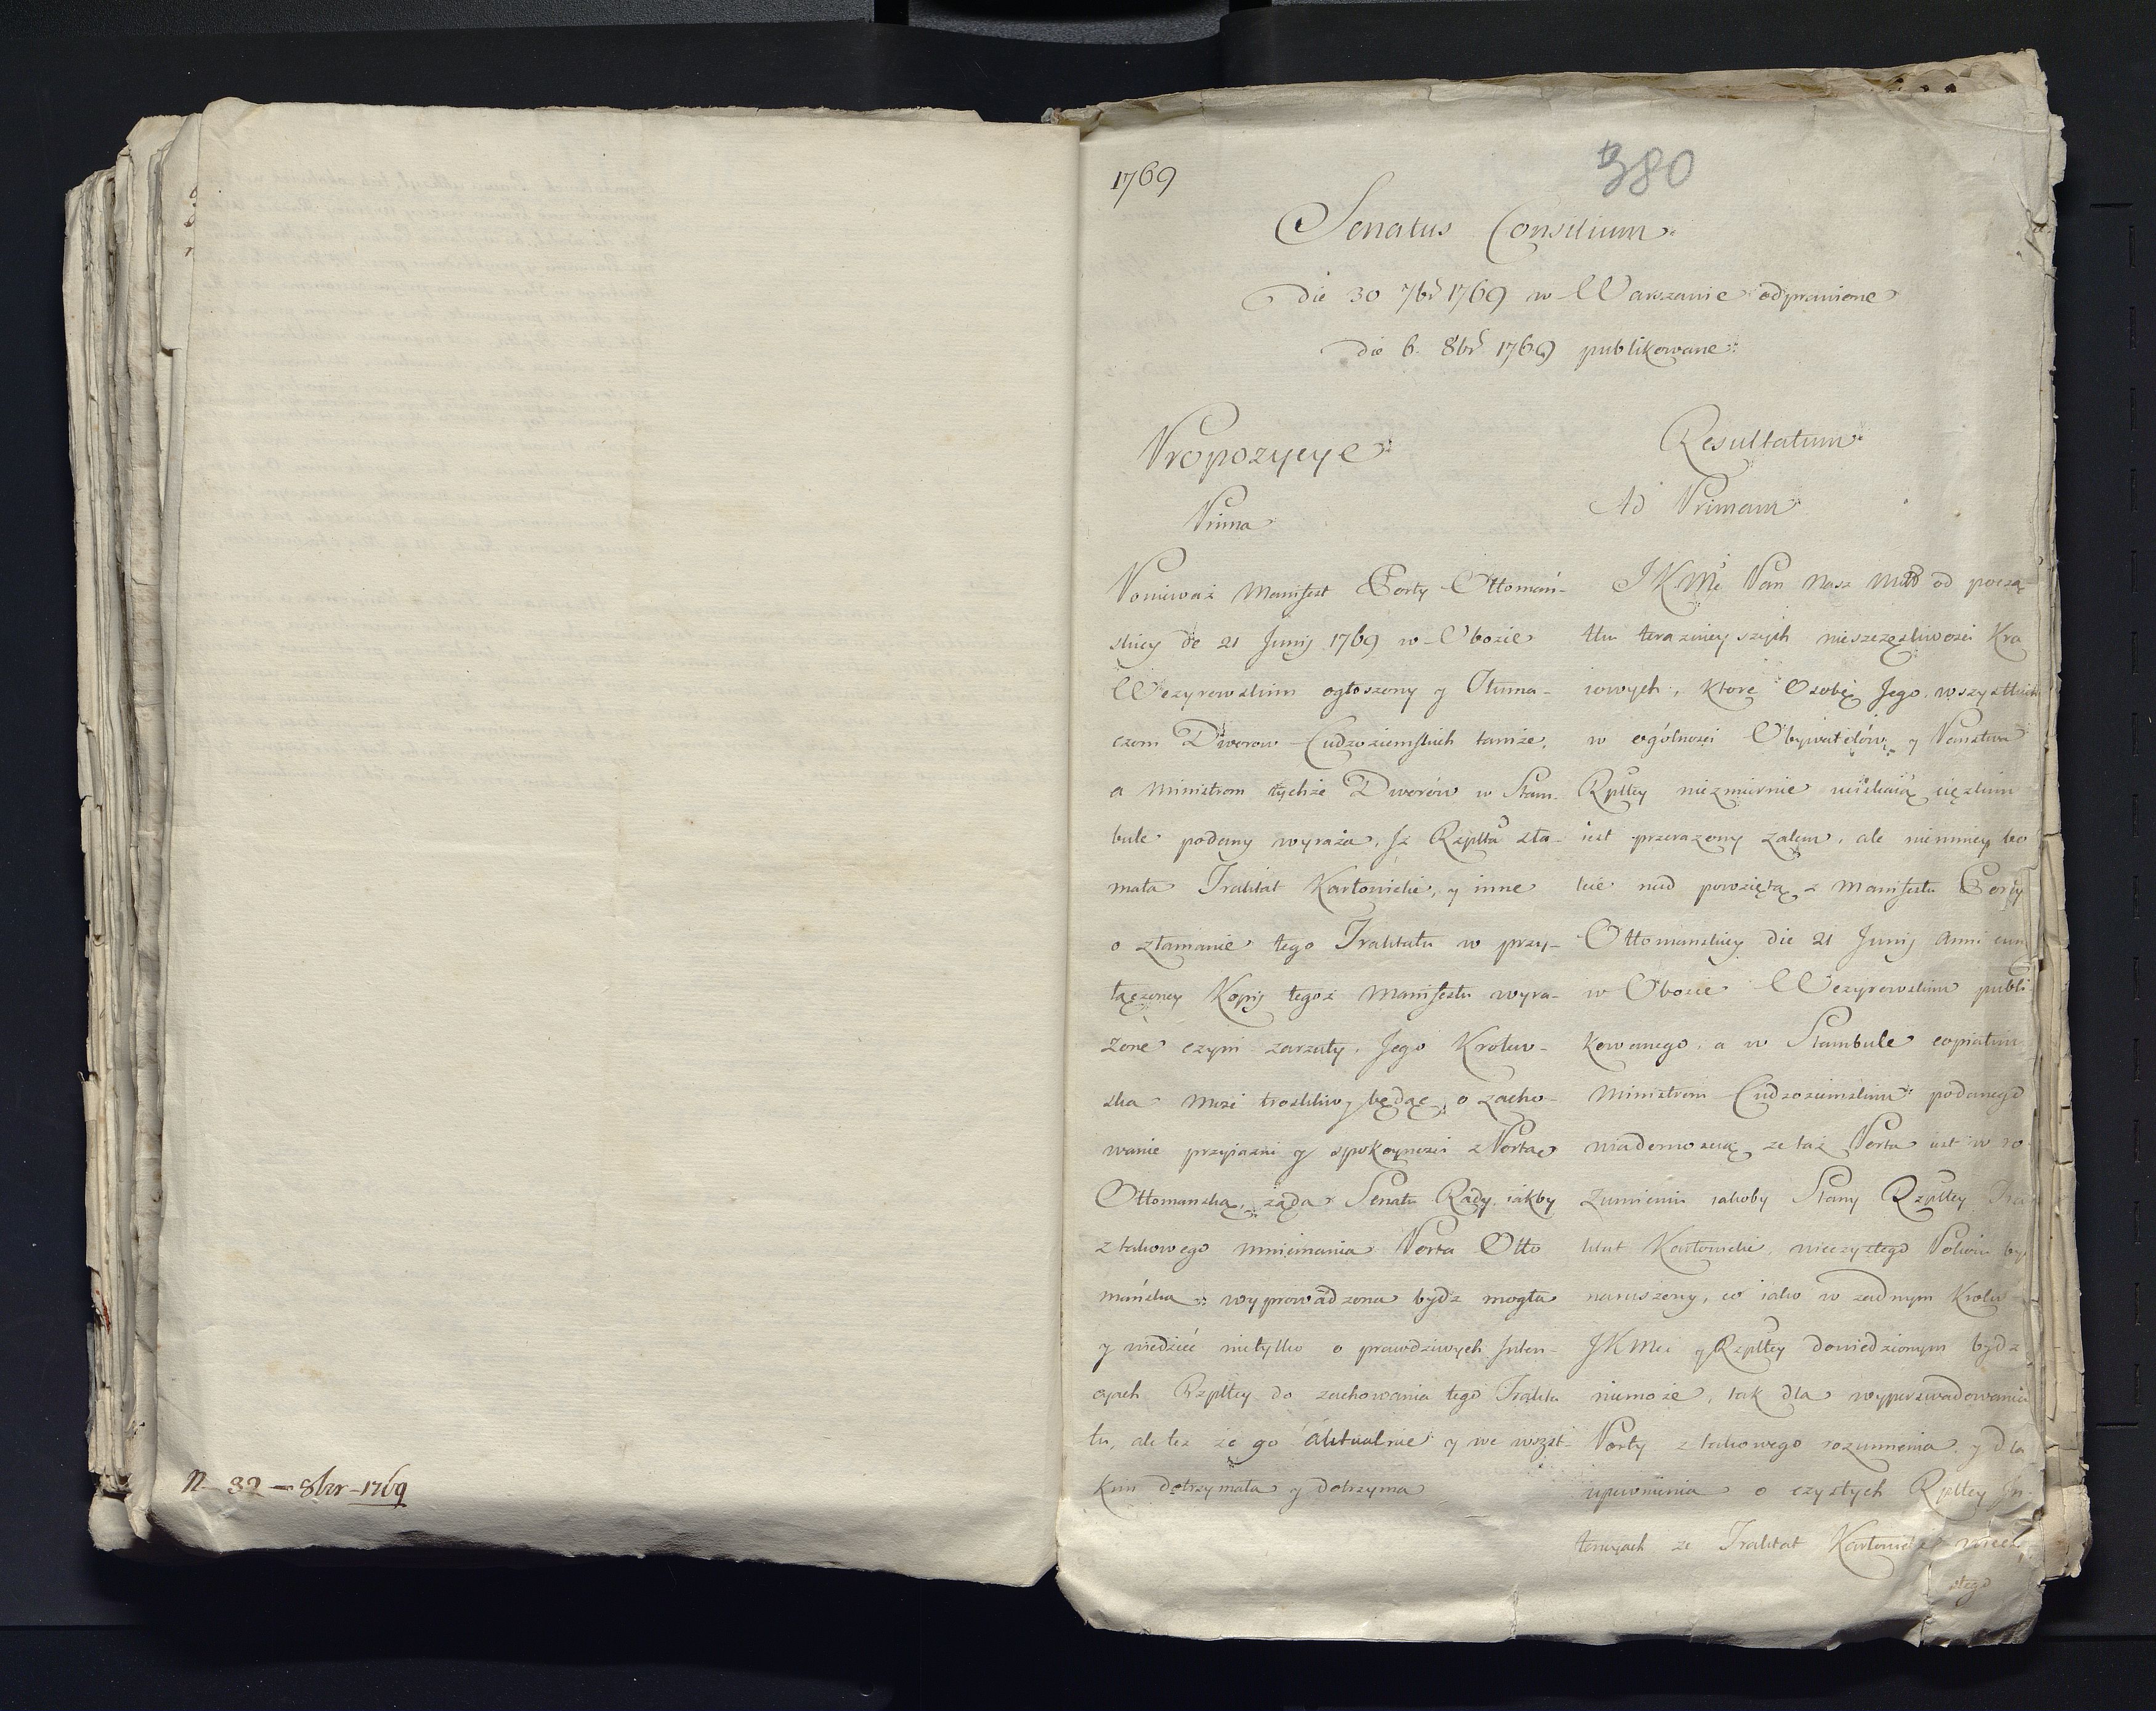 n 32 - 8br - 1769
1769
380
Senatus Consilium
die 30 7br 1769 w Warszawie odprawione
die 6. 8br 1769 publikowane
Propozycye
Prima
Ponieważ Manifest Porty Ottomań-
skiey de 21 Junij 1769 w Obozie
Wezyrowskim ogłoszony y Tłuma-
czom Dworow Cudzoziemskich tamże,
a Ministrom tychże Dworów w Stam-
bule podany wyraża, Iż Rzplta zła-
mała Traktat Karłowicki, y inne
o złamanie tego Traktatu w przy-
łączoney Kopij tegoż Manifestu wyra-
żone czyni zarzuty. Jego Krolew-
ska Mość troskliwy będąc o zacho-
wanie przyiazni y spokoyności z Portą
Ottomanską, żąda Senatu Rady iakby
z takowego mniemania Porta Otto
mańska wyprowadzona bydz mogła
y wiedzieć nietylko o prawdziwych Inten-
cyach Rzpltey do zachowania tego Trakta
tu, ale też że go aktualnie y we wszst-
kim dotrzymała y dotrzyma
Resultatum
Ad Primam
JKMć Pan Nasz Miłł od począ
tku teraznieyszych nieszczęśliwości Kra
iowych, ktore Osobę Jego, wszystkich
w ogólności Obywatelów y Panstwa
Rpltey niezmiernie uciskaią cięzkim
iest przerażony żalem, ale niemniey bo
leie nad powziętą z Manifestu Porty
Ottomanskiey die 21 Junij Anni cur
w Obozie Wezyrowskim publi
kowanego, a w Stambule copiatim
Ministrom Cudzoziemskim podanego
wiadomością, że taż Porta iest w ro
zumieniu iakoby Stany Rzpltey Tra
ktat Karłowicki wieczystego Pokoiu by
naruszony, co iako w żadnym Kroku
JKMci y Rzpltey dowiedzionym bydz
niemoże, tak dla wyperswadowania
Porty z takowego rozumienia y dla
upewnienia o czystych Rpltey In-
tencyach że Traktat Karłowicki wieczy
stego